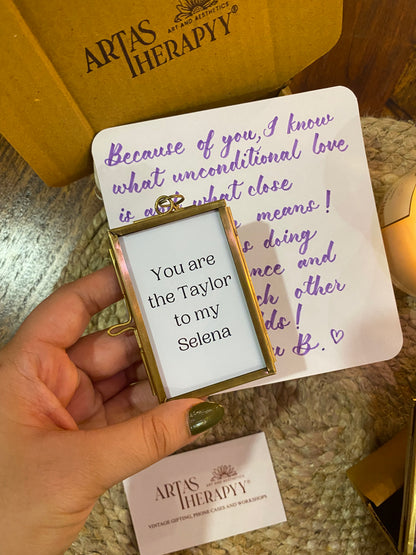 ARTAS
ART AND AESTHETICS
THERAPYY®
Because of you, I know
what unconditional love
is and what close
means!
doing
and
other
B. ♡
You are
the Taylor
to my
Selena
ARTAS
ART AND AESTHETICS
THERAPYY®
VINTAGE GIFTING, PHONE CASES AND WORKSHOPS